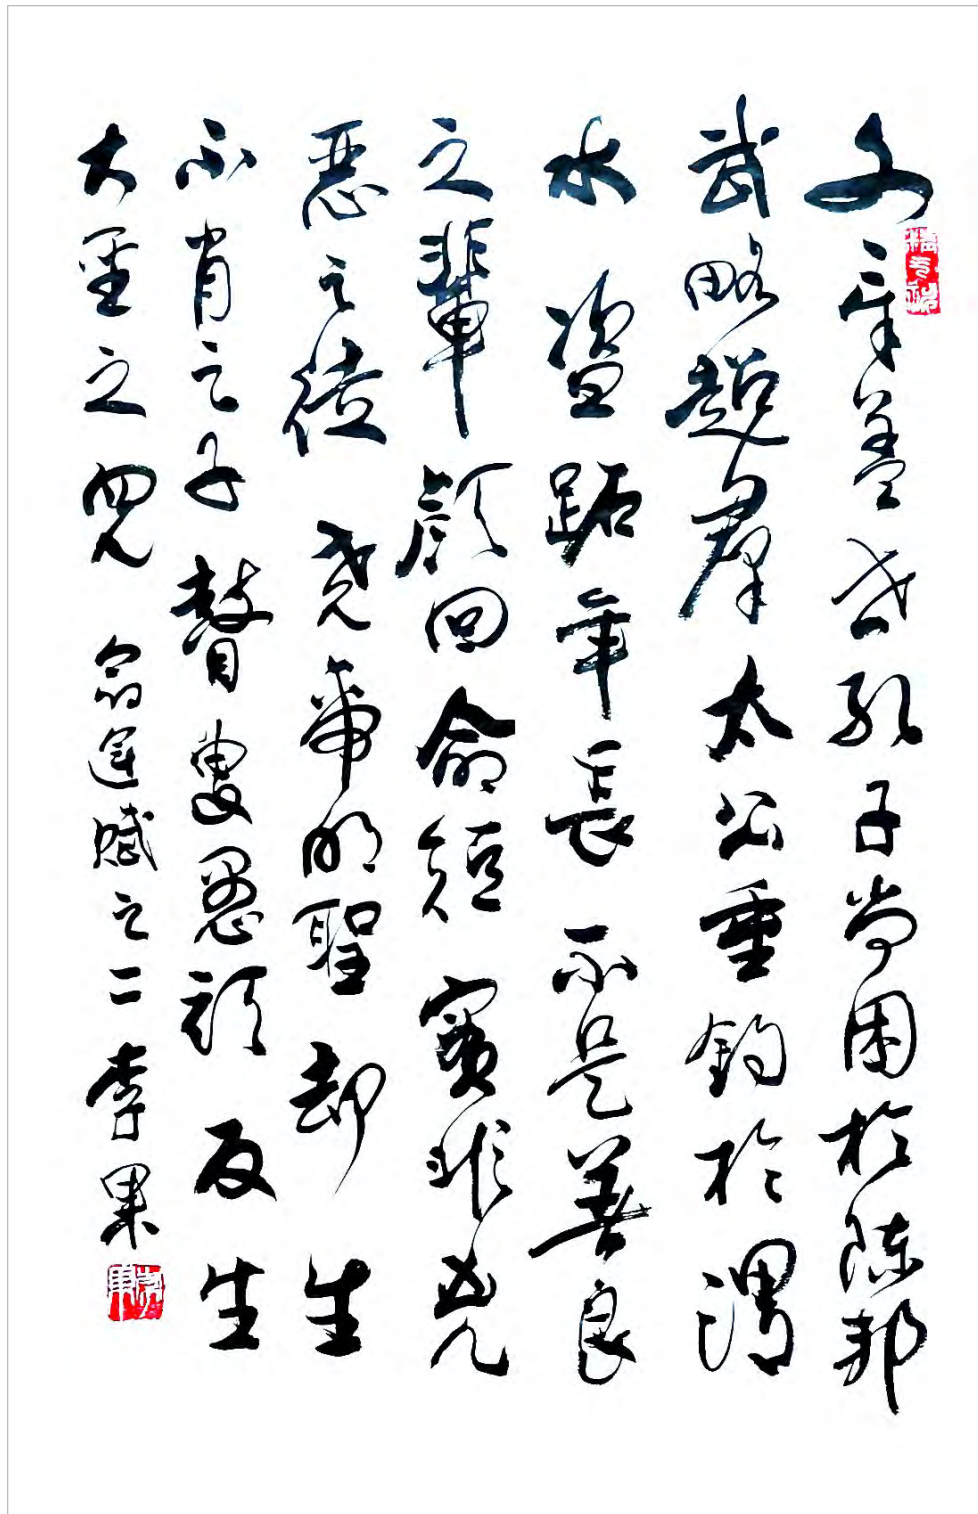 文章盖世孔子尚困於陳邦
武略超羣太公垂釣於渭
水盗跖年長不是善良
之輩顏回命短實非兇
惡之徒堯帝明聖却生
不肖之子瞽叟愚頑反生
大聖之兒 命運賦之二李果